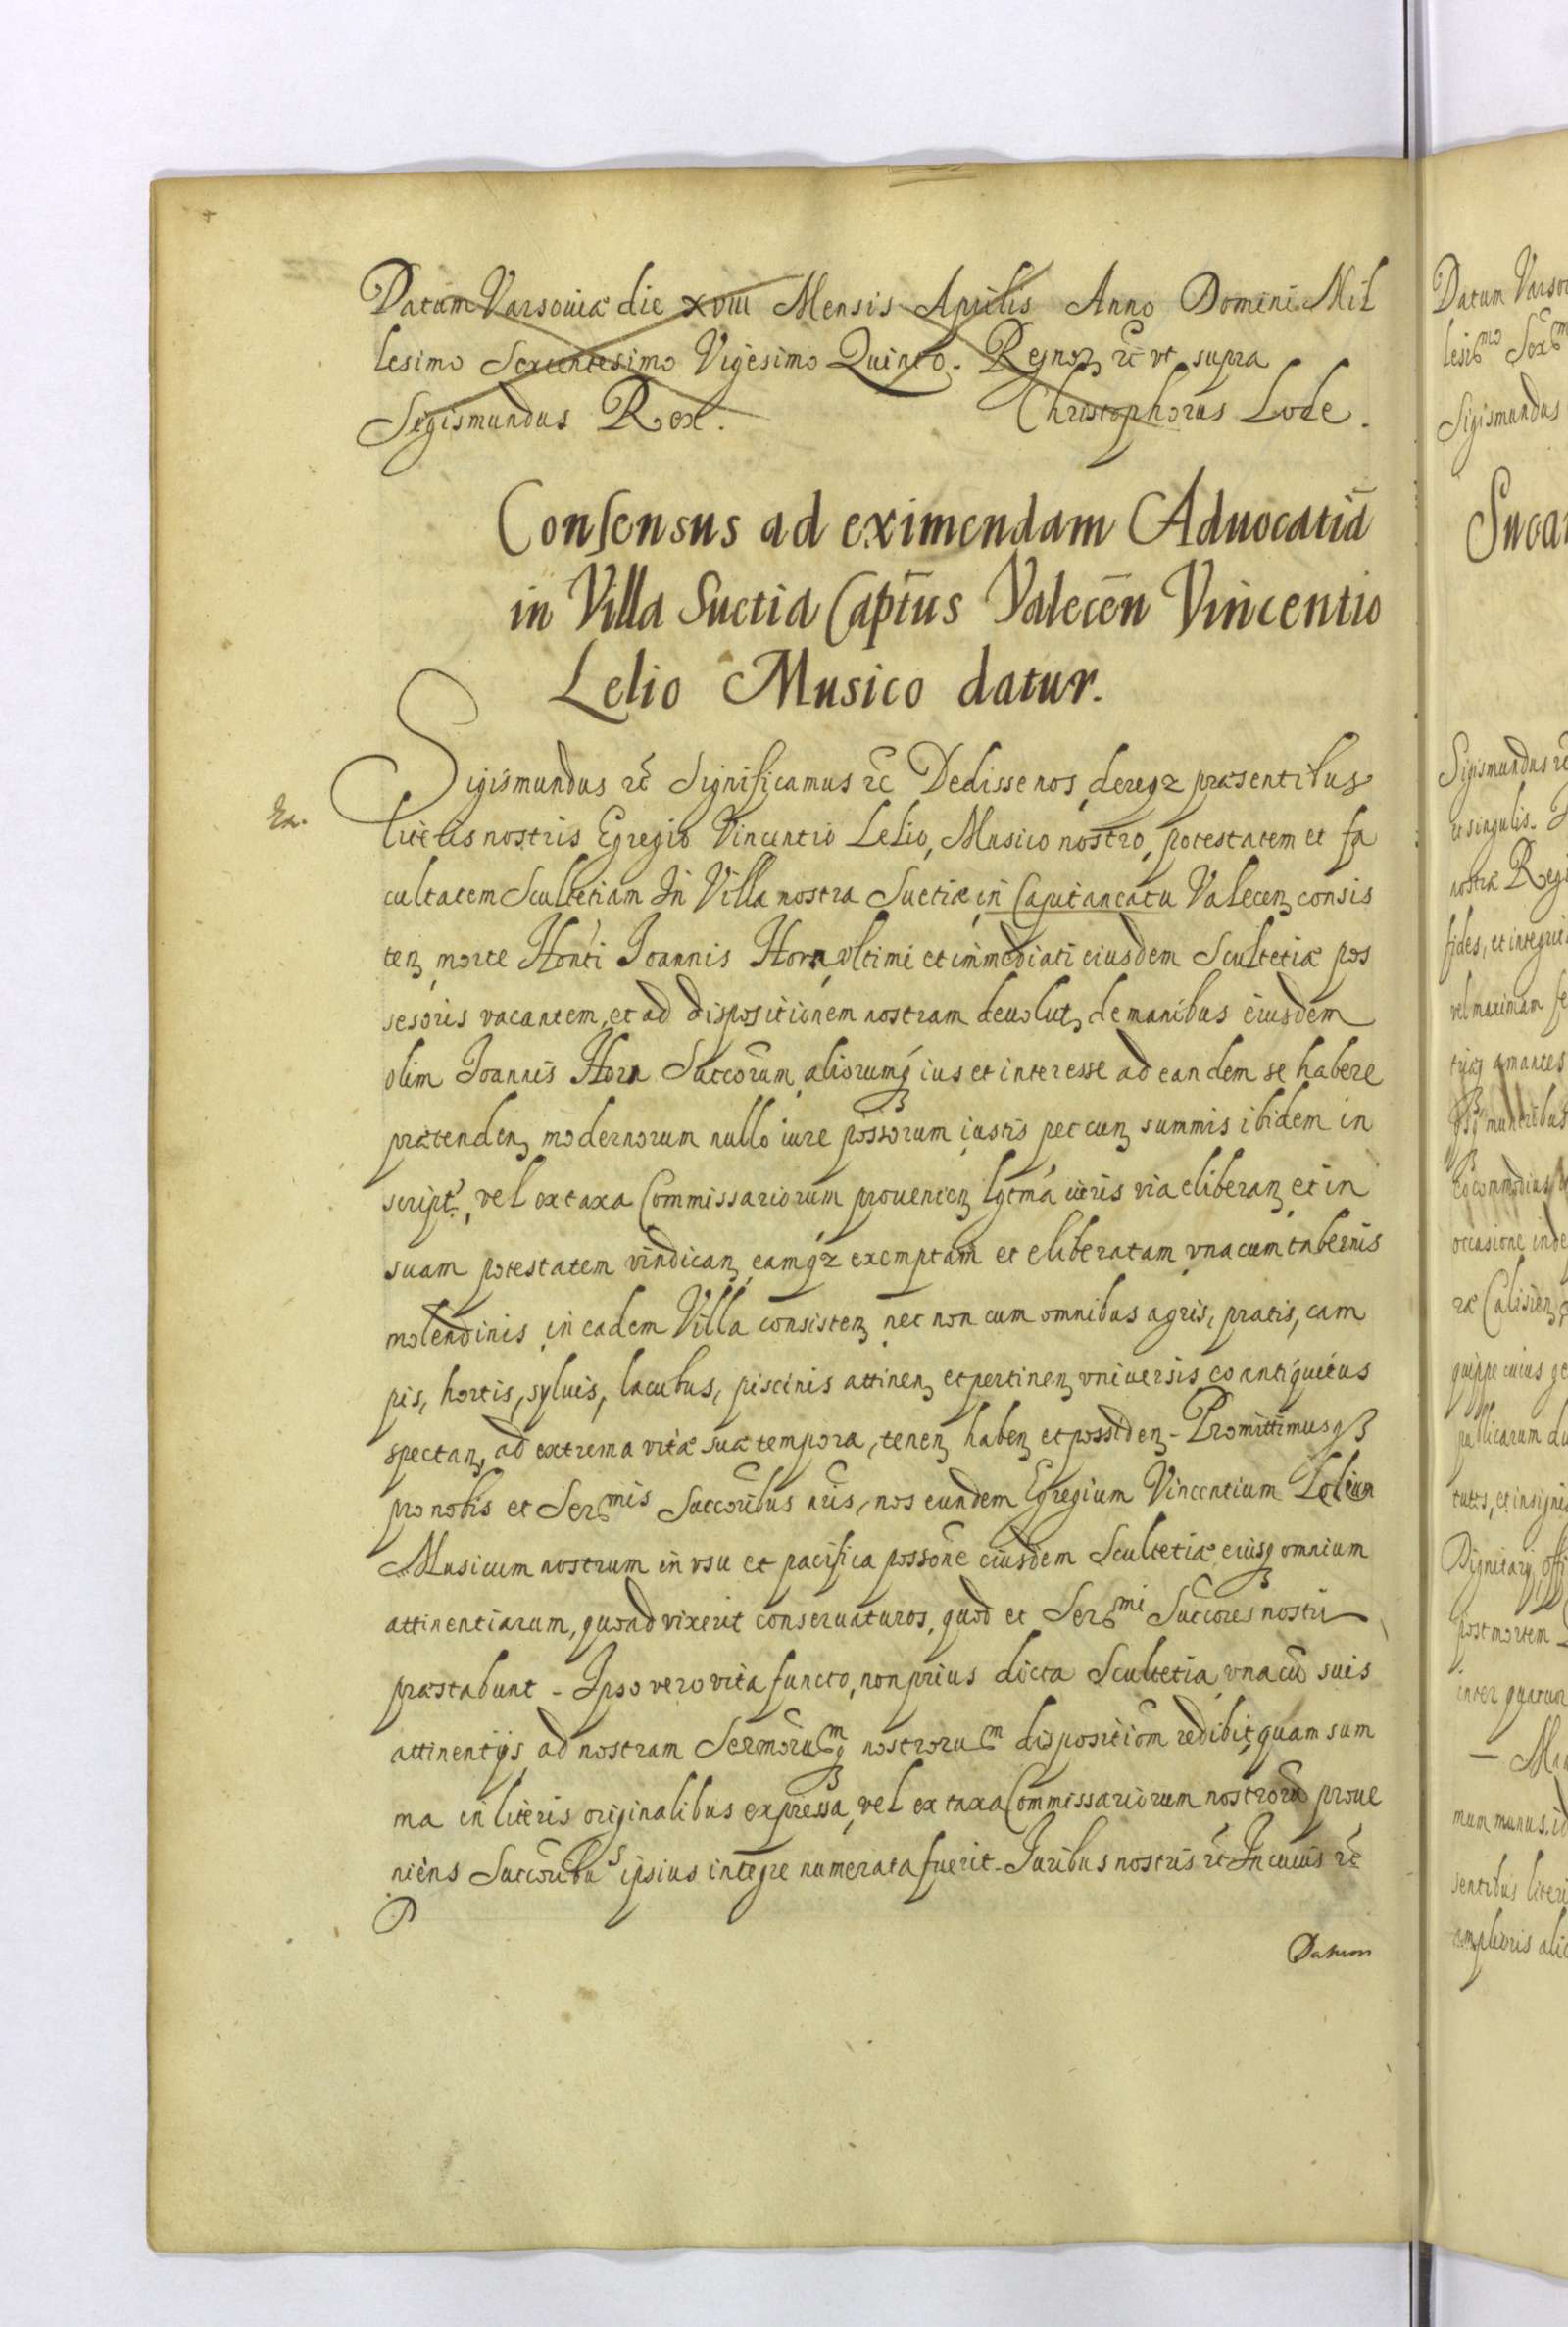 Datum Varsouiæ die xviii Mensis Aprilis Anno Domini Mil
lesimo Sexcentesimo Vigesimo Quinto. Regnoꝝ ꝛc̃ vt supra
Sigismundus Rex. Christophorus Lode.
Consensus ad eximendam Aduocatiã
in Villa Suctia Capt̃us Valecẽn Vincentio
Lelio Musico datur.
Sigismundus ꝛc̃ Significamus ꝛc̃ Dedisse nos, dereqz præsentibus
Ex.
literis nostris Egregio Vincentio Lelio, Musico nostro, potestatem et fa
cultatem Scultetiam In Villa nostra Suctiæ in Capitaneatu Valecen̨ consis
ten̨ morte Hon̄ti Joannis Horn, vltimi et immediati eiusdem Scultetiæ pos
sesoris vacantem, et ad dispositionem nostram deuolut̨, de manibus eiusdem
olim Joannis Horn Succõrum aliorumq̷ ius et interesse ad eandem se habere
prætenden̨ modernorum nullo iure põssorum iustis peccun̨ summis ibidem in
script̃, vel ex taxa Commissariorum prouenien̨ lgtmã iuris via eliberan̨ et in
suam potestatem vindican̨, eamq́z exemptam et eliberatam vna cum tabernis
molendinis in eadem Villa consisten̨ nec non cum omnibus agris, pratis, cam
pis, hortis, syluis, lacubus, piscinis attinen̨ et pertinen̨ vniuersis eo antiquitus
spectan̨, ad extrema vitæ suæ tempora, tenen̨ haben̨ et possiden̨ - Promittimusq̷
pro nobis et Ser͠mis Succõribus nr̃is, nos eundem Egregium Vincentium Lelium
Musicum nostrum in vsu et pacifica possõne eiusdem Scultetiæ, eiusq̷ omnium
attinentiarum, quoad vixerit conseruaturos, quod et Ser͠mi Succõres nostri
præstabunt - Ipso vero vita functo, non prius dicta Scultetia vna cũ suis
attinentijs ad nostram Sermõrumq̷ nostrorum dispositiõm redibit, quam sum
ma in literis originalibus expressa, vel ex taxa Commissariorum nostrorũ proue
niens Succõribus ipsius integre numerata fuerit - Juribus nostris ꝛc̃ In cuius ꝛc̃
Datum
Datum Varso
lesi͠mo Sex
Sigismundus
Sigismundus ꝛc̃
et singulis.
nostra Regi
fides, et integrit
vel maximam
amantes
muneribus
occasione inde
ræ Calisien̨
quippe cuius ge
publicarum du
tutis, et insignis
post mortem
inter quatuor
mum munus. id
sentibus literi
amplioris alic